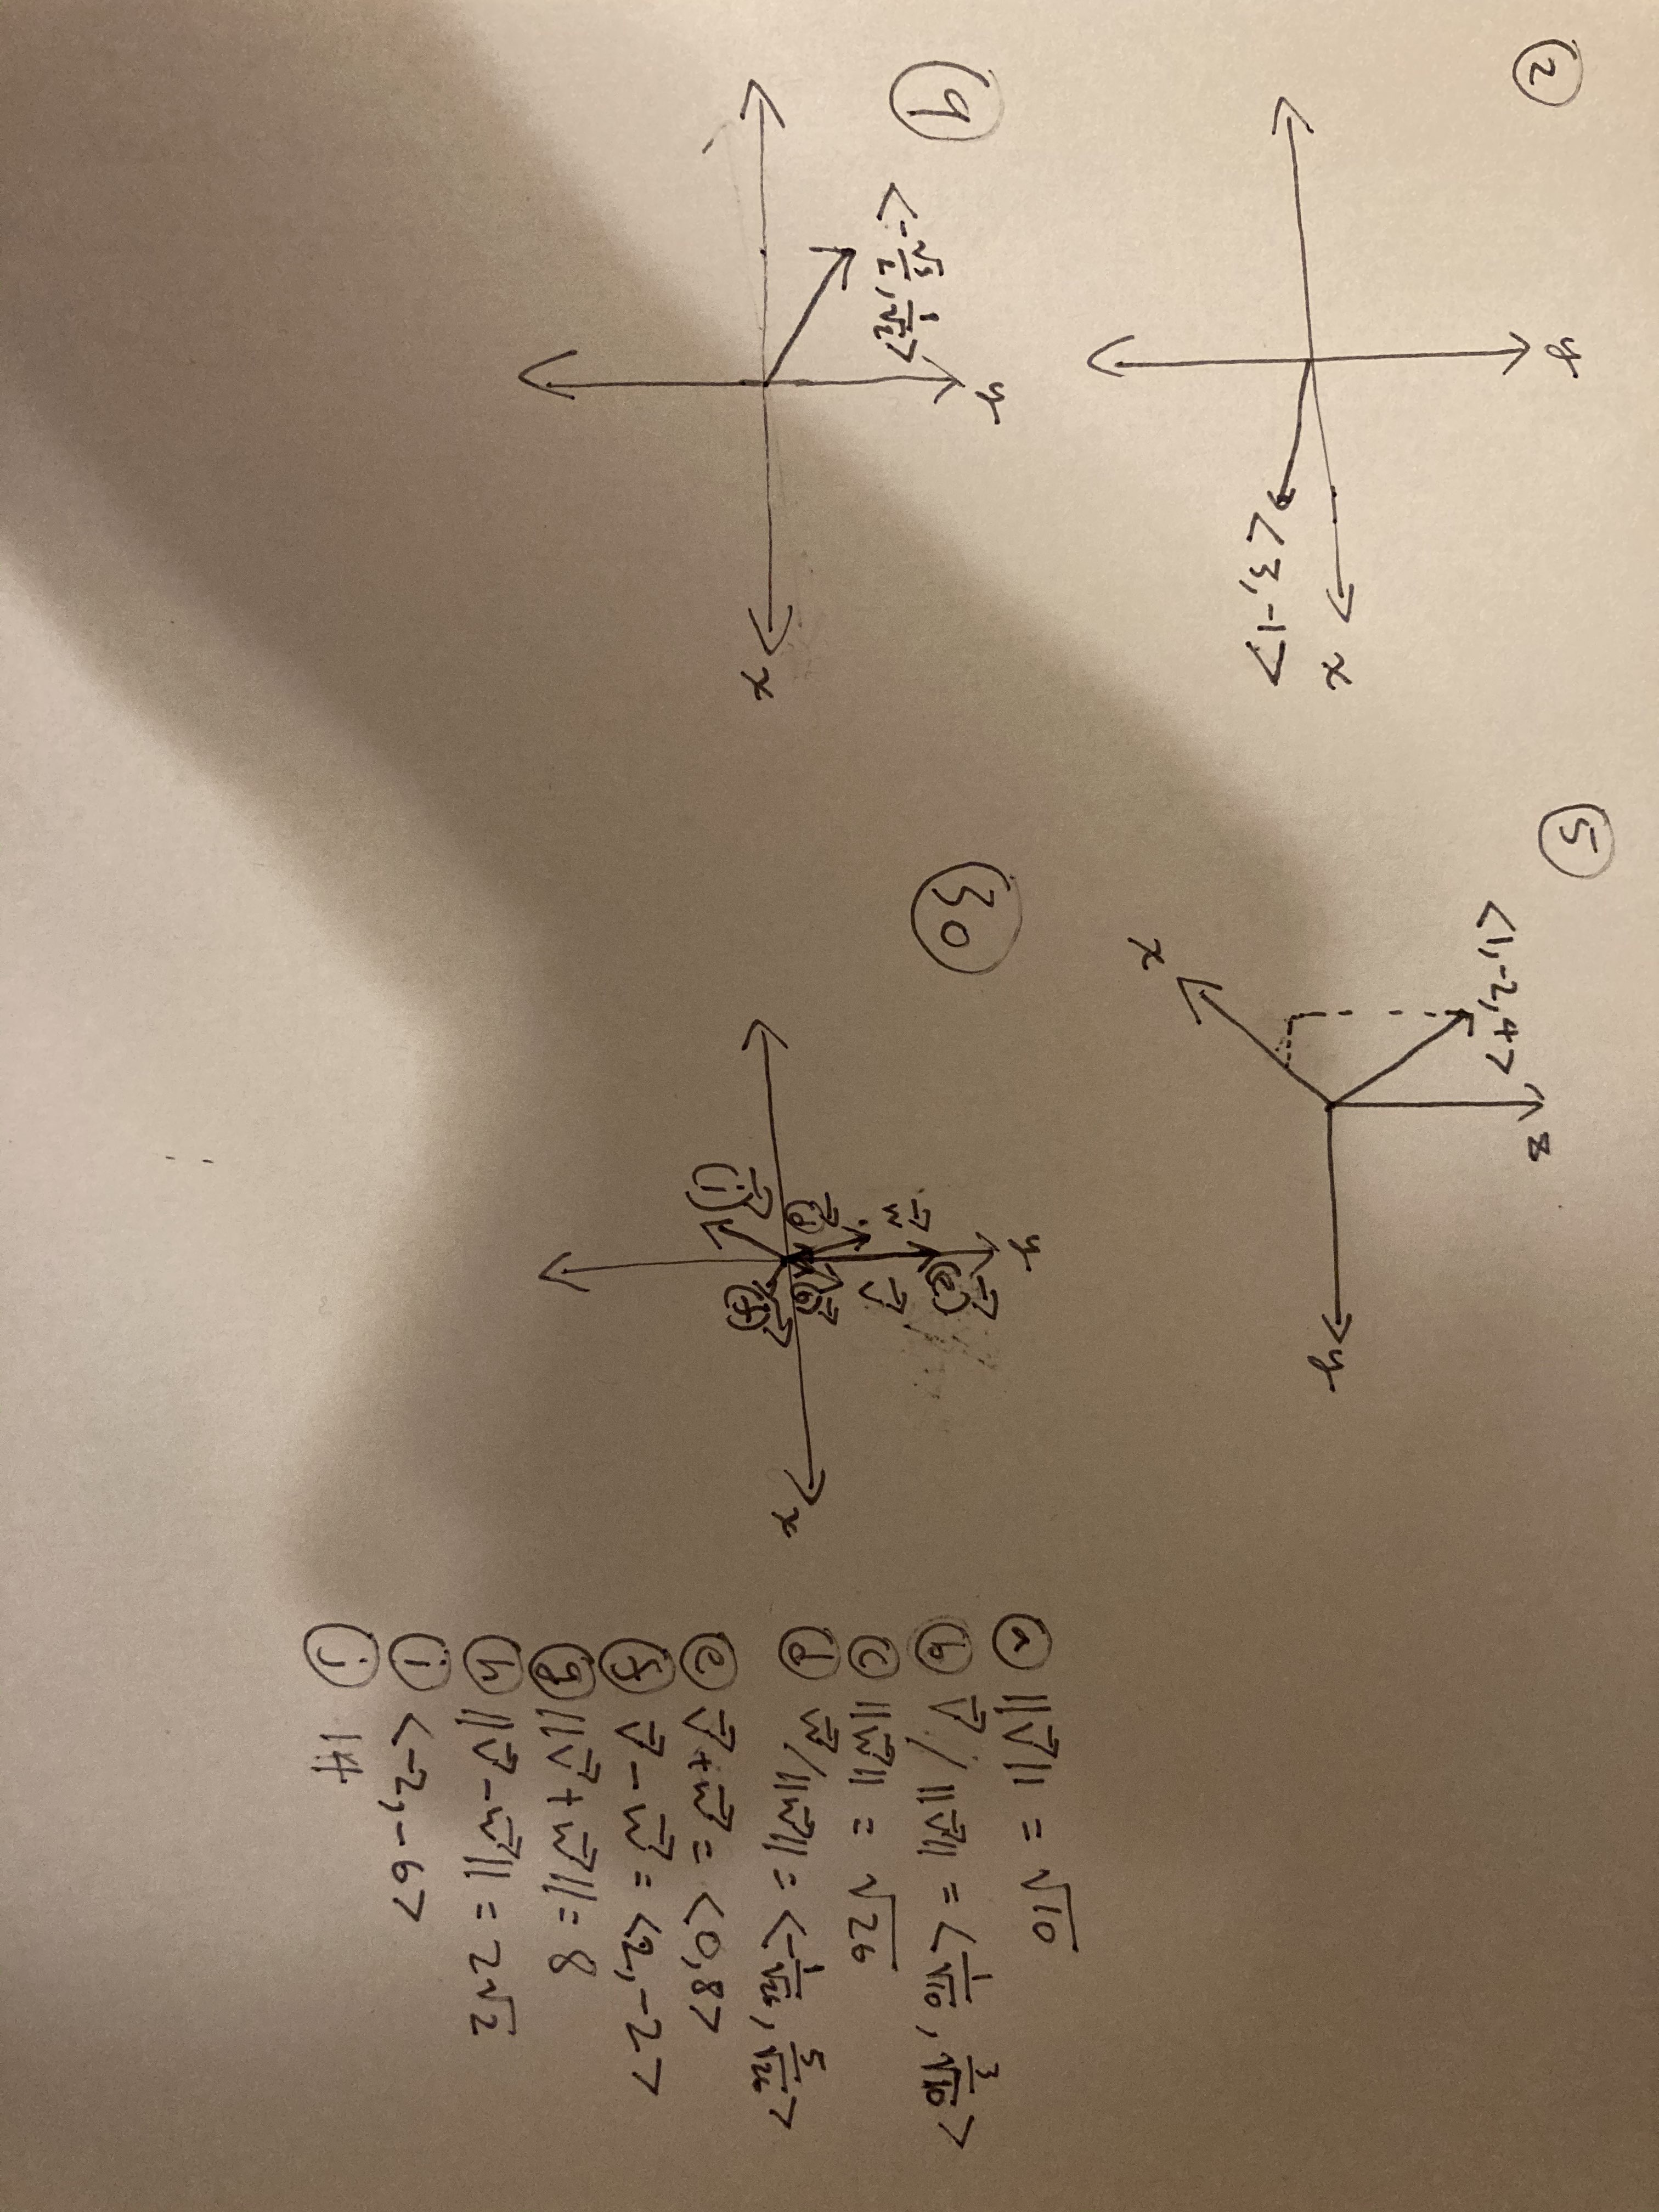 ②
y
x
<3,-1>
⑤
<1,-2,4>
z
x
y
⑨
y
x
㉚
y
x
w⃗
v⃗
ⓔ
ⓓ
ⓑ
ⓕ
ⓘ
ⓐ ||v⃗|| = √10
ⓑ v⃗/||v⃗|| = <1/√10, 3/√10>
ⓒ ||w⃗|| = √26
ⓓ w⃗/||w⃗|| = <-1/√26, 5/√26>
ⓔ v⃗+w⃗ = <0,8>
ⓕ v⃗-w⃗ = <2,-2>
ⓖ ||v⃗+w⃗|| = 8
ⓗ ||v⃗-w⃗|| = 2√2
ⓘ <-2,-6>
ⓙ 14